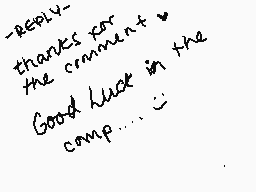 -REPLY-
thanks for
the comment ♥
Good Luck in the
comp.... :)